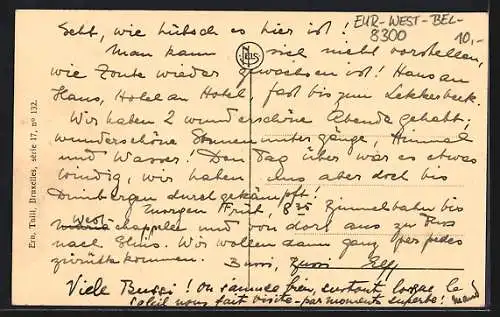 Seht, wie hübsch es hier ist!
EUR-WEST-BEL-
8300 10,-
Man kann sich nicht vorstellen,
wie Zoute wieder gewachsen ist! Haus an
Haus, Hotel an Hotel, fast bis zum Lekkerbek.
Wir haben 2 wunderschöne Abende gehabt,
wunderschöne Sonnenuntergänge, Himmel
und Wasser! Den Tag über war es etwas
windig, wir haben uns aber doch bis
Duinbergen durchgekämpft!
Morgen früh, 8 25 Zimmelbahn bis
Westkappelle und von dort aus zu Fuss
nach Sluis. Wir wollen dann ganz per pedes
zurückkommen. Bussi, Bussi Elly
Viele Bussi! On s'amuse bien, surtout lorsque le
soleil nous fait visite - par moments superbe!
Ern. Thill, Bruxelles, série 17, nº 132.
NELS